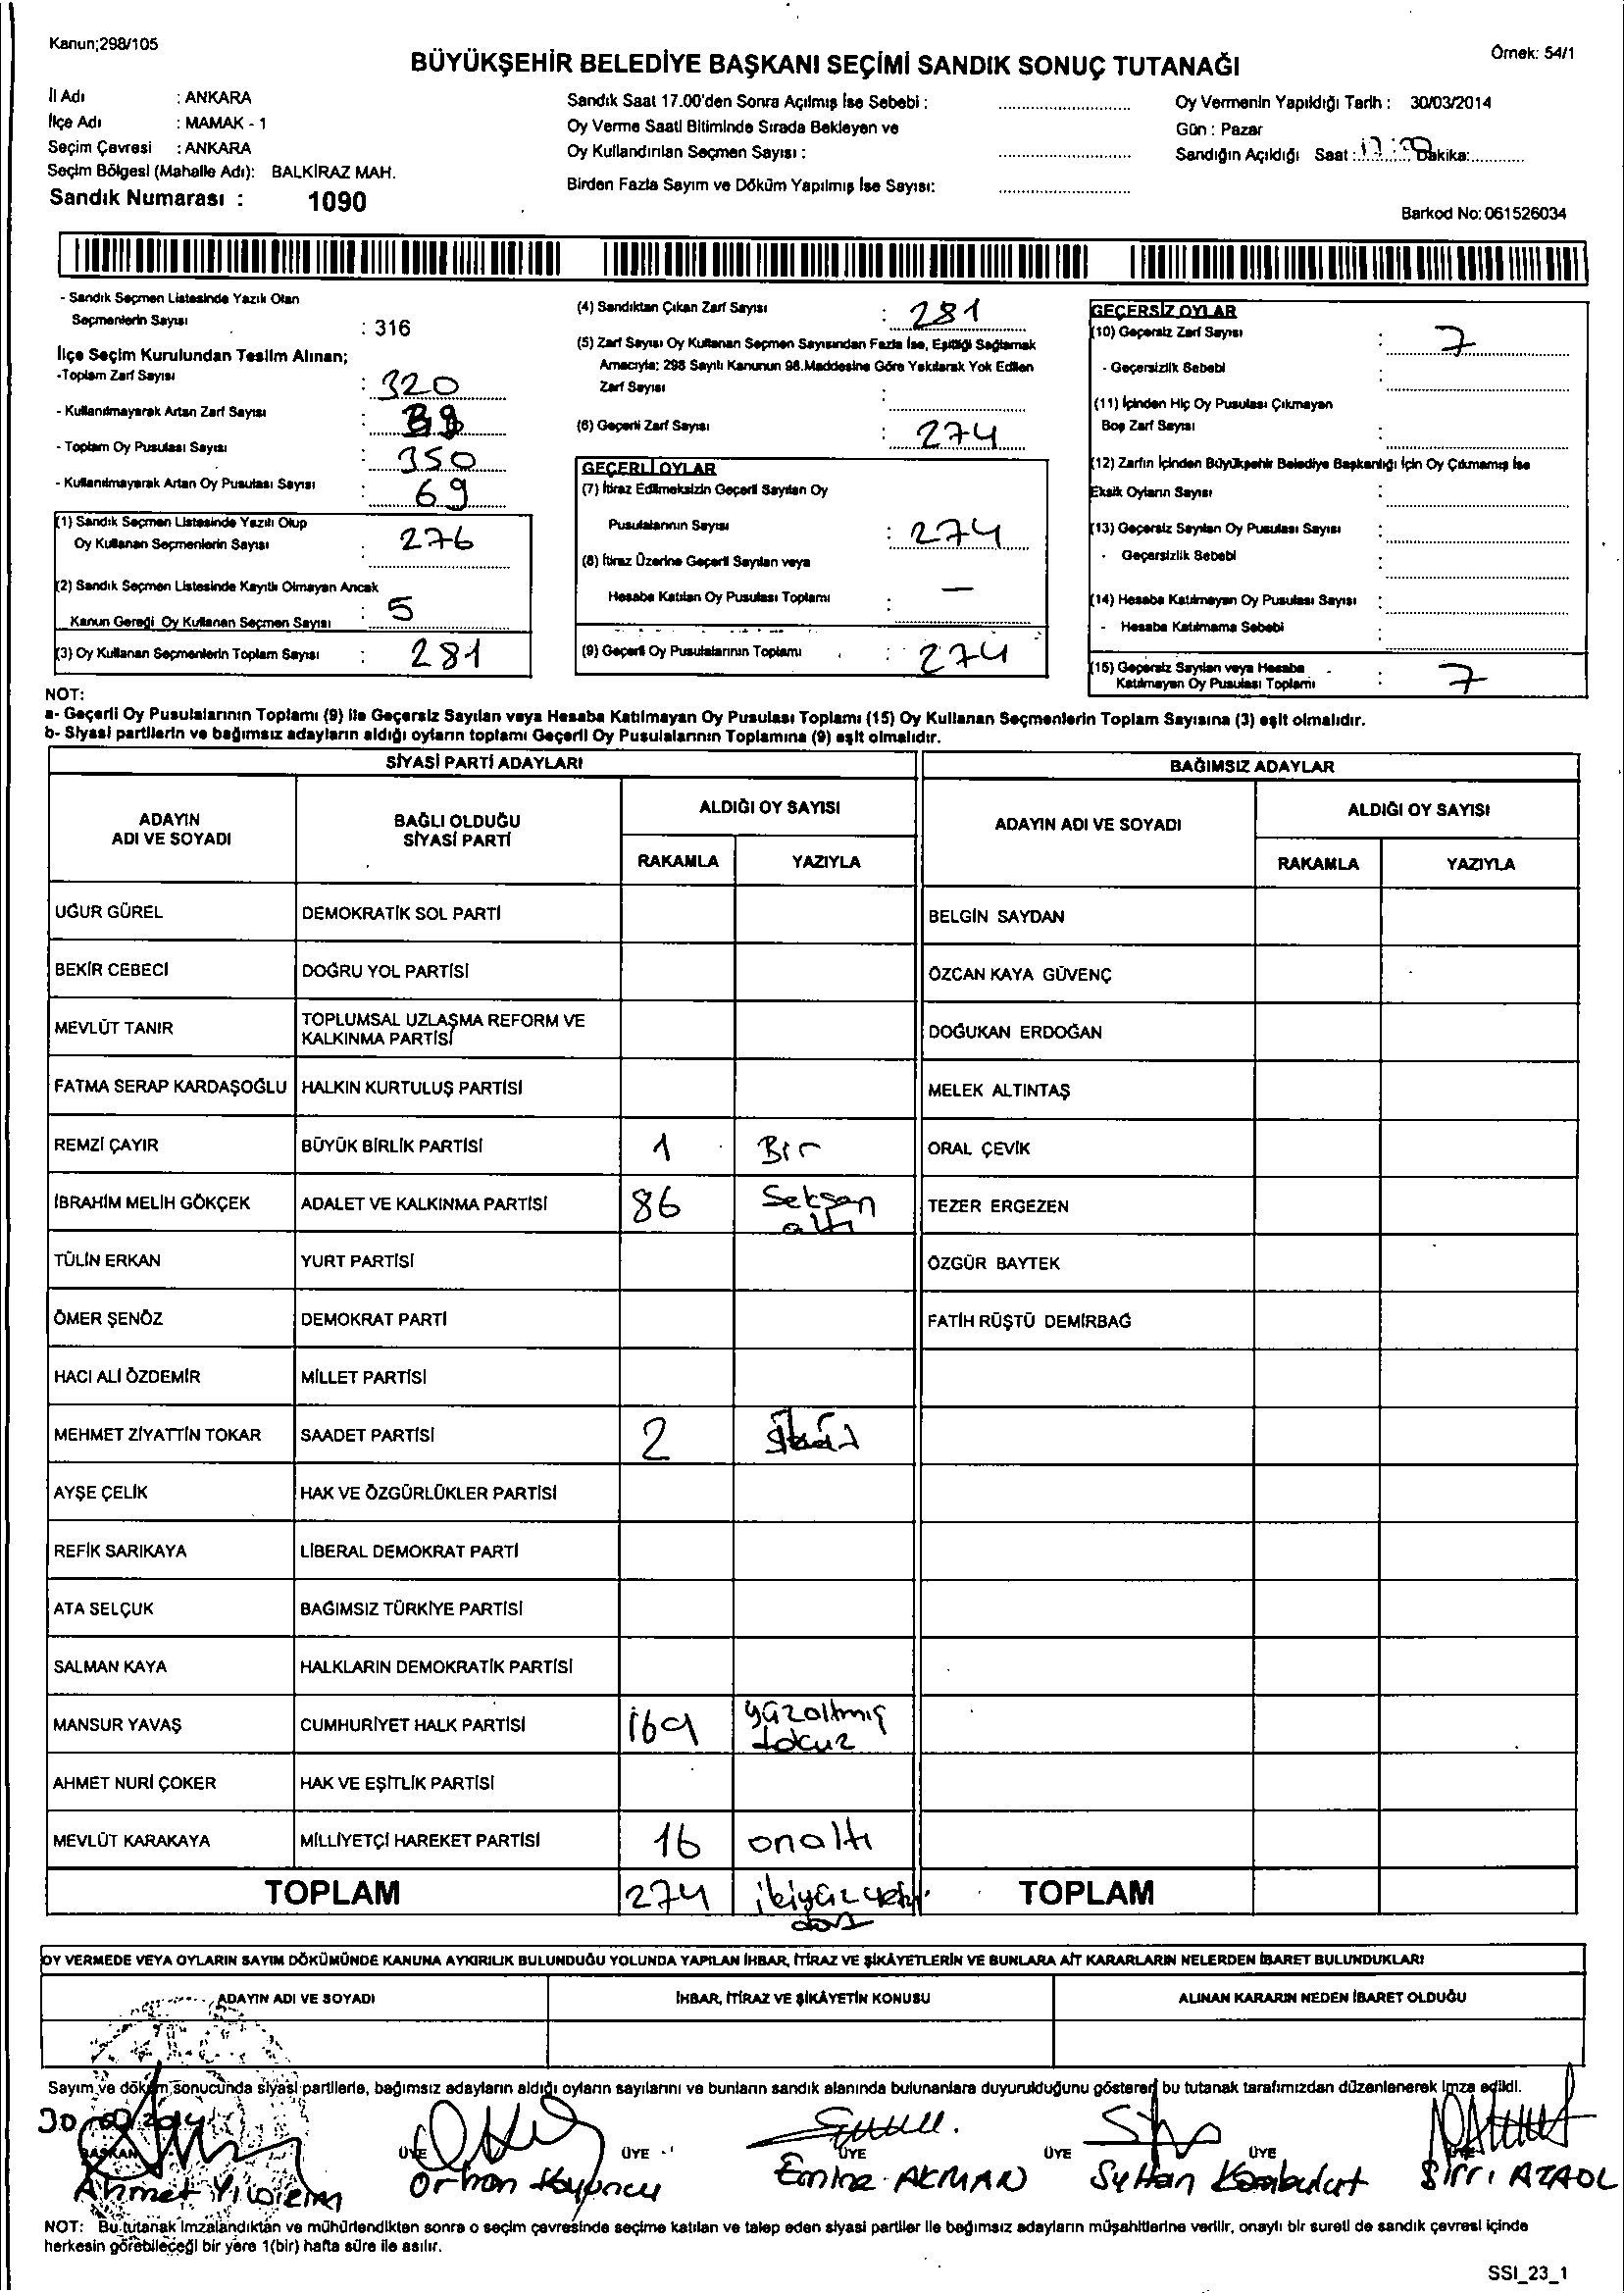 Kanun;298/105
Örnek: 54/1
BÜYÜKŞEHİR BELEDİYE BAŞKANI SEÇİMİ SANDIK SONUÇ TUTANAĞI
İl Adı : ANKARA
İlçe Adı : MAMAK - 1
Seçim Çevresi : ANKARA
Seçim Bölgesi (Mahalle Adı): BALKİRAZ MAH.
Sandık Numarası : 1090
Sandık Saat 17.00'den Sonra Açılmış İse Sebebi :
Oy Verme Saati Bitiminde Sırada Bekleyen ve
Oy Kullandırılan Seçmen Sayısı :
Birden Fazla Sayım ve Döküm Yapılmış İse Sayısı:
Oy Vermenin Yapıldığı Tarih : 30/03/2014
Gün : Pazar
Sandığın Açıldığı Saat : 17:00 Dakika:
Barkod No: 061526034
- Sandık Seçmen Listesinde Yazılı Olan
Seçmenlerin Sayısı : 316
İlçe Seçim Kurulundan Teslim Alınan;
-Toplam Zarf Sayısı : 320
- Kullanılmayarak Artan Zarf Sayısı :
- Toplam Oy Pusulası Sayısı : 350
- Kullanılmayarak Artan Oy Pusulası Sayısı : 69
(1) Sandık Seçmen Listesinde Yazılı Olup
Oy Kullanan Seçmenlerin Sayısı : 276
(2) Sandık Seçmen Listesinde Kayıtlı Olmayan Ancak
Kanun Gereği Oy Kullanan Seçmen Sayısı : 5
(3) Oy Kullanan Seçmenlerin Toplam Sayısı : 281
(4) Sandıktan Çıkan Zarf Sayısı : 281
(5) Zarf Sayısı Oy Kullanan Seçmen Sayısından Fazla İse, Eşitliği Sağlamak
Amacıyla; 298 Sayılı Kanunun 98.Maddesine Göre Yakılarak Yok Edilen
Zarf Sayısı :
(6) Geçerli Zarf Sayısı : 274
GEÇERLİ OYLAR
(7) İtiraz Edilmeksizin Geçerli Sayılan Oy
Pusulalarının Sayısı : 274
(8) İtiraz Üzerine Geçerli Sayılan veya
Hesaba Katılan Oy Pusulası Toplamı : —
(9) Geçerli Oy Pusulalarının Toplamı : 274
GEÇERSİZ OYLAR
(10) Geçersiz Zarf Sayısı : 7
- Geçersizlik Sebebi :
(11) İçinden Hiç Oy Pusulası Çıkmayan
Boş Zarf Sayısı :
(12) Zarfın İçinden Büyükşehir Belediye Başkanlığı İçin Oy Çıkmamış İse
Eksik Oyların Sayısı :
(13) Geçersiz Sayılan Oy Pusulası Sayısı :
- Geçersizlik Sebebi :
(14) Hesaba Katılmayan Oy Pusulası Sayısı :
- Hesaba Katılmama Sebebi :
(15) Geçersiz Sayılan veya Hesaba
Katılmayan Oy Pusulası Toplamı : 7
NOT:
a- Geçerli Oy Pusulalarının Toplamı (9) ile Geçersiz Sayılan veya Hesaba Katılmayan Oy Pusulası Toplamı (15) Oy Kullanan Seçmenlerin Toplam Sayısına (3) eşit olmalıdır.
b- Siyasi partilerin ve bağımsız adayların aldığı oyların toplamı Geçerli Oy Pusulalarının Toplamına (9) eşit olmalıdır.
SİYASİ PARTİ ADAYLARI BAĞIMSIZ ADAYLAR
ADAYIN ADI VE SOYADI BAĞLI OLDUĞU SİYASİ PARTİ ALDIĞI OY SAYISI ADAYIN ADI VE SOYADI ALDIĞI OY SAYISI
RAKAMLA YAZIYLA RAKAMLA YAZIYLA
UĞUR GÜREL DEMOKRATİK SOL PARTİ BELGİN SAYDAN
BEKİR CEBECİ DOĞRU YOL PARTİSİ ÖZCAN KAYA GÜVENÇ
MEVLÜT TANIR TOPLUMSAL UZLAŞMA REFORM VE KALKINMA PARTİSİ DOĞUKAN ERDOĞAN
FATMA SERAP KARDAŞOĞLU HALKIN KURTULUŞ PARTİSİ MELEK ALTINTAŞ
REMZİ ÇAYIR BÜYÜK BİRLİK PARTİSİ 1 Bir ORAL ÇEVİK
İBRAHİM MELİH GÖKÇEK ADALET VE KALKINMA PARTİSİ 86 Seksen altı TEZER ERGEZEN
TÜLİN ERKAN YURT PARTİSİ ÖZGÜR BAYTEK
ÖMER ŞENÖZ DEMOKRAT PARTİ FATİH RÜŞTÜ DEMİRBAĞ
HACI ALİ ÖZDEMİR MİLLET PARTİSİ
MEHMET ZİYATTİN TOKAR SAADET PARTİSİ 2
AYŞE ÇELİK HAK VE ÖZGÜRLÜKLER PARTİSİ
REFİK SARIKAYA LİBERAL DEMOKRAT PARTİ
ATA SELÇUK BAĞIMSIZ TÜRKİYE PARTİSİ
SALMAN KAYA HALKLARIN DEMOKRATİK PARTİSİ
MANSUR YAVAŞ CUMHURİYET HALK PARTİSİ 169 yüzaltmış dokuz
AHMET NURİ ÇOKER HAK VE EŞİTLİK PARTİSİ
MEVLÜT KARAKAYA MİLLİYETÇİ HAREKET PARTİSİ 16 onaltı
TOPLAM 274 TOPLAM
OY VERMEDE VEYA OYLARIN SAYIM DÖKÜMÜNDE KANUNA AYKIRILIK BULUNDUĞU YOLUNDA YAPILAN İHBAR, İTİRAZ VE ŞİKÂYETLERİN VE BUNLARA AİT KARARLARIN NELERDEN İBARET BULUNDUKLARI
ADAYIN ADI VE SOYADI İHBAR, İTİRAZ VE ŞİKÂYETİN KONUSU ALINAN KARARIN NEDEN İBARET OLDUĞU
Sayım ve döküm sonucunda siyasi partilerle, bağımsız adayların aldığı oyların sayılarını ve bunların sandık alanında bulunanlara duyurulduğunu gösteren bu tutanak tarafımızdan düzenlenerek imza edildi.
BAŞKAN ÜYE ÜYE ÜYE ÜYE ÜYE
Ahmet Yıldırım Orhan Koyuncu Emine AKMAN Sultan Karabulut Sırrı
NOT: Bu tutanak imzalandıktan ve mühürlendikten sonra o seçim çevresinde seçime katılan ve talep eden siyasi partiler ile bağımsız adayların müşahitlerine verilir, onaylı bir sureti de sandık çevresi içinde
herkesin görebileceği bir yere 1(bir) hafta süre ile asılır.
SSI_23_1